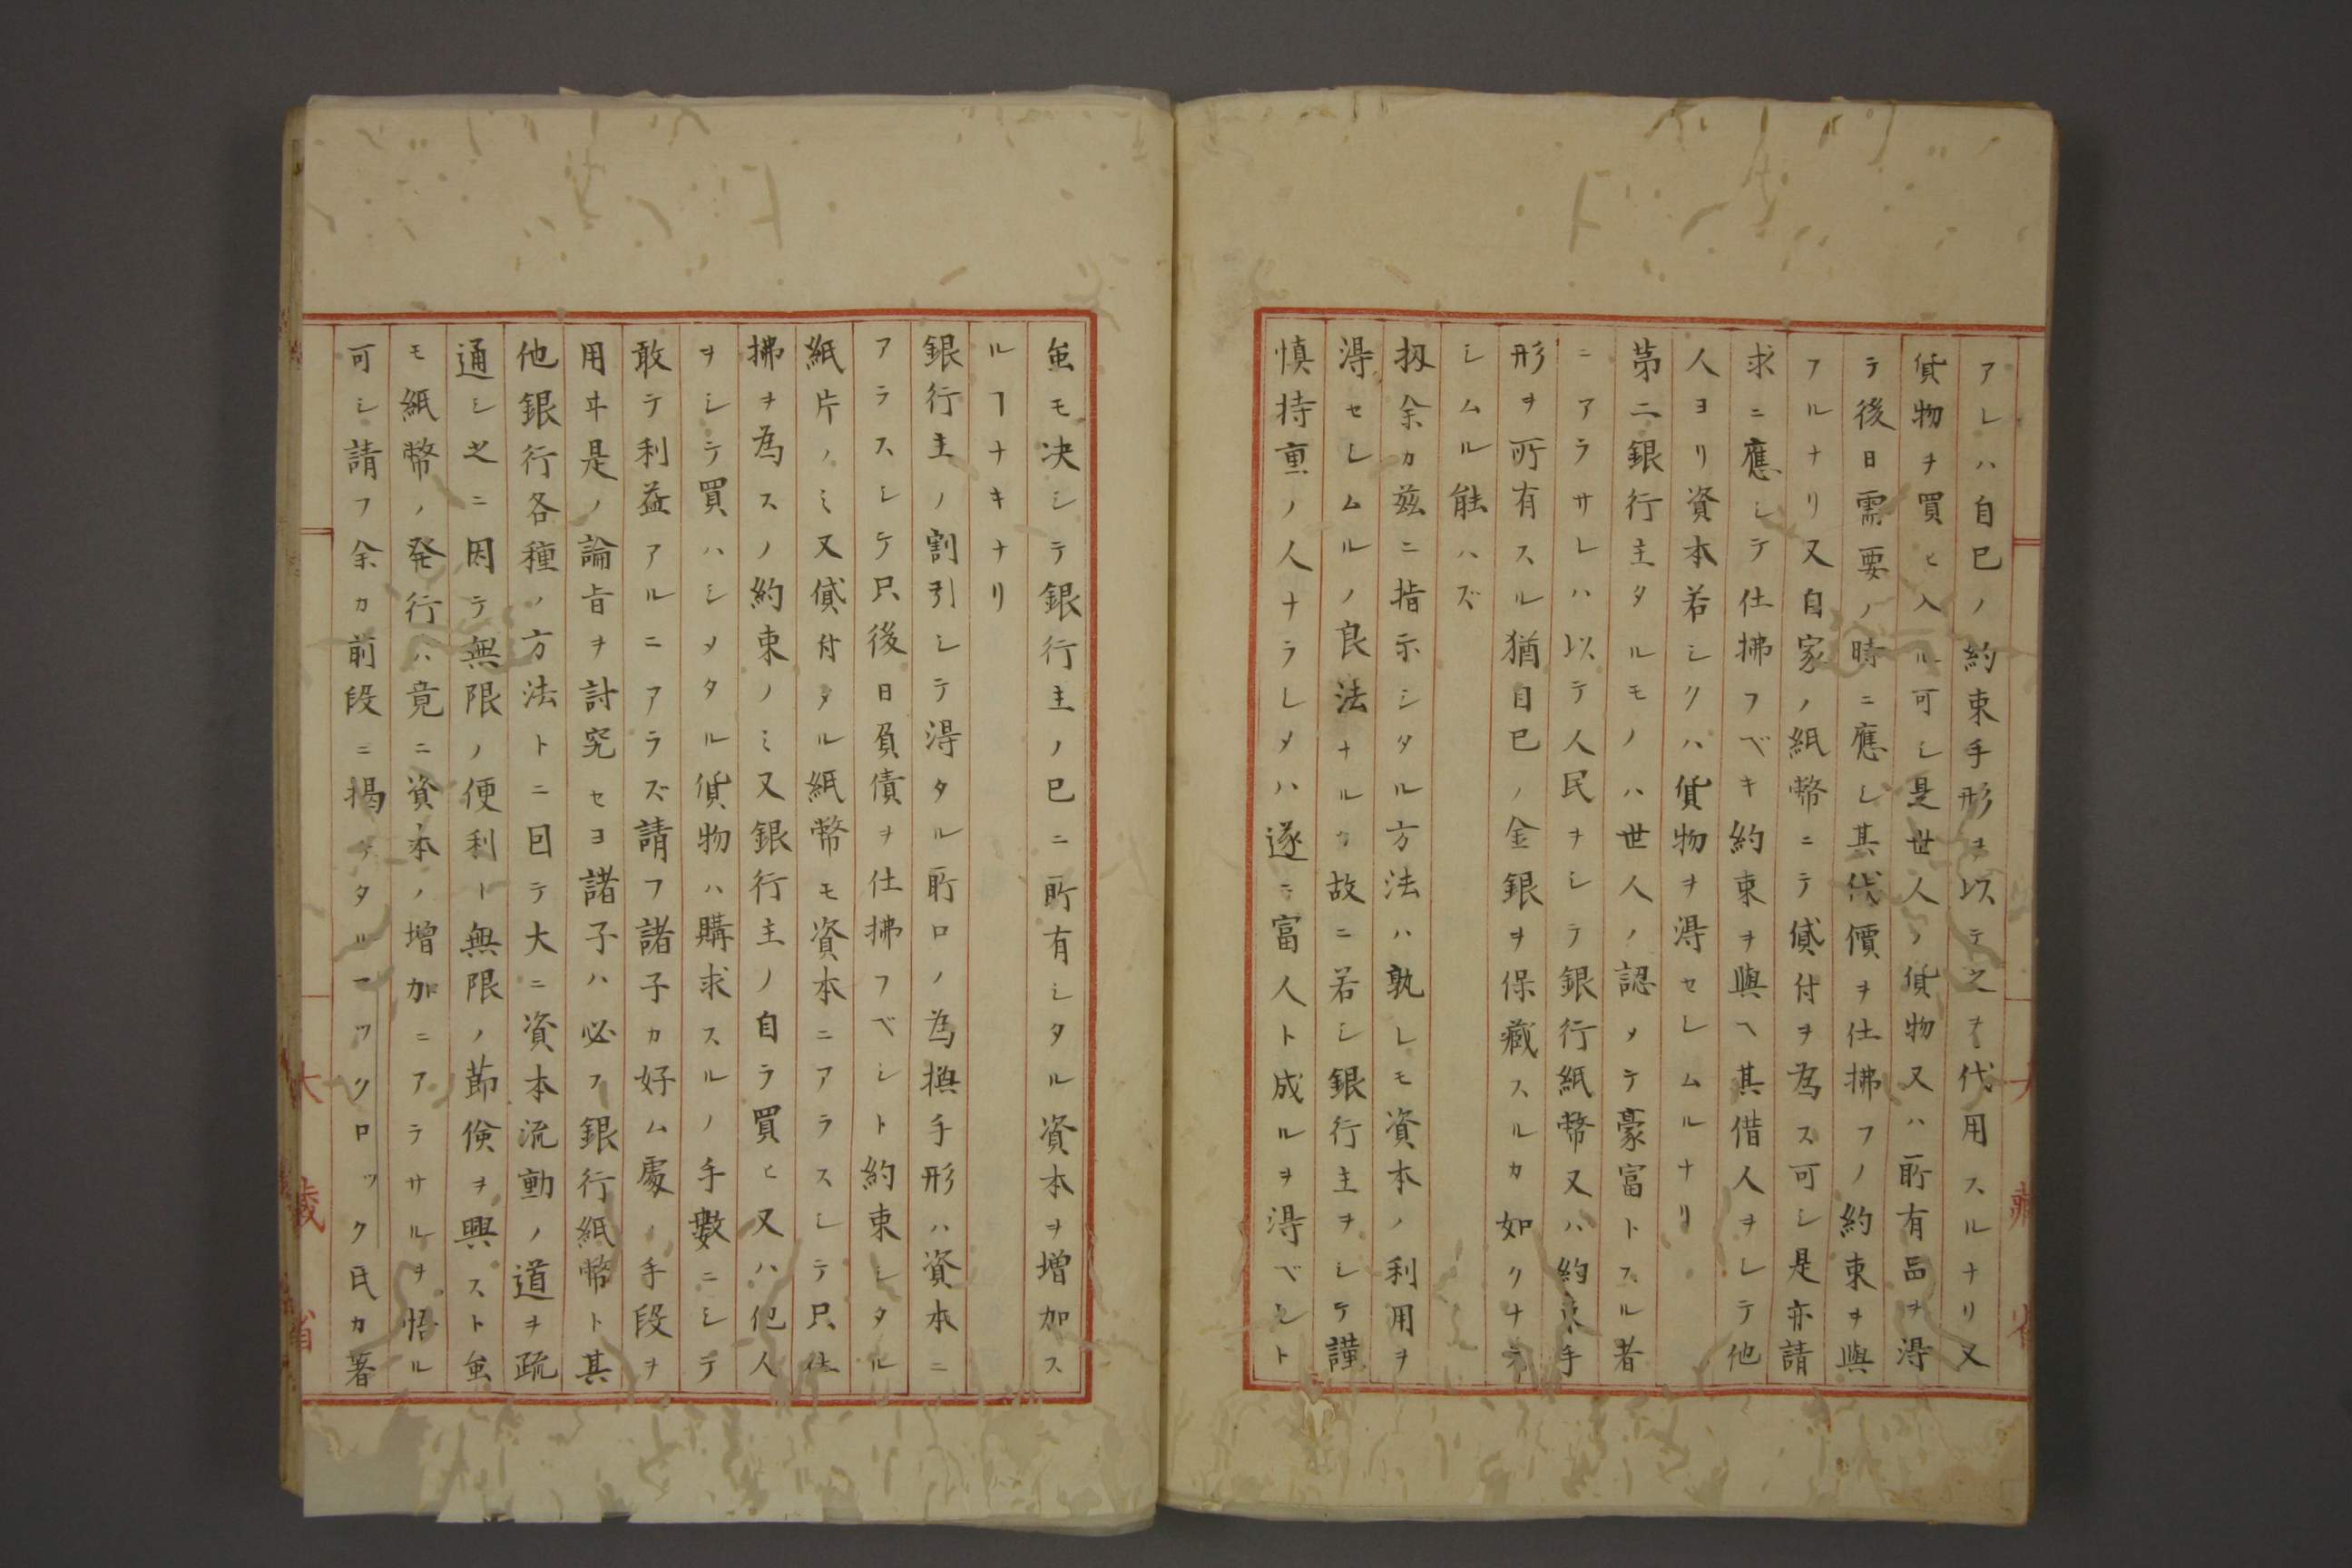 アレハ自己ノ約束手形ヲ以テ之ヲ代用スルナリ又
貨物ヲ買ヒ入ル可シ是世人ノ貨物又ハ所有品ヲ得
テ後日需要ノ時ニ應シ其代價ヲ仕拂フノ約束ヲ與
アルナリ又自家ノ紙幣ニテ貸付ヲ為ス可シ是亦請
求ニ應シテ仕拂フベキ約束ヲ與ヘ其借人ヲシテ他
人ヨリ資本若シクハ貨物ヲ得セシムルナリ
苐二銀行主タルモノハ世人ノ認メテ豪富トスル者
ニアラサレハ以テ人民ヲシテ銀行紙幣又ハ約束手
形ヲ所有スル猶自己ノ金銀ヲ保藏スルカ如クナラ
シムル能ハズ
扨余カ茲ニ指示シタル方法ハ孰レモ資本ノ利用ヲ
得セシムルノ良法ナルカ故ニ若シ銀行主ヲシテ謹
慎持重ノ人ナラシメハ遂ニ富人ト成ルヲ得ベシト
大藏省
虽モ决シテ銀行主ノ已ニ所有シタル資本ヲ増加ス
ルヿナキナリ
銀行主ノ割引シテ得タル所ロノ為換手形ハ資本ニ
アラスシテ只後日負債ヲ仕拂フベシト約束シタル
紙片ノミ又貸付タル紙幣モ資本ニアラスシテ只仕
拂ヲ為スノ約束ノミ又銀行主ノ自ラ買ヒ又ハ他人
ヲシテ買ハシメタル貨物ハ購求スルノ手數ニシテ
敢テ利益アルニアラズ請フ諸子カ好ム處ノ手段ヲ
用ヰ是ノ論旨ヲ討究セヨ諸子ハ必ラ銀行紙幣ト其
他銀行各種ノ方法トニ因テ大ニ資本流動ノ道ヲ疏
通シ之ニ因テ無限ノ便利ト無限ノ節儉ヲ興スト虽
モ紙幣ノ発行ハ竟ニ資本ノ増加ニアラサルヲ悟ル
可シ請フ余カ前段ニ揭ケタルマックロック氏カ著
大藏省